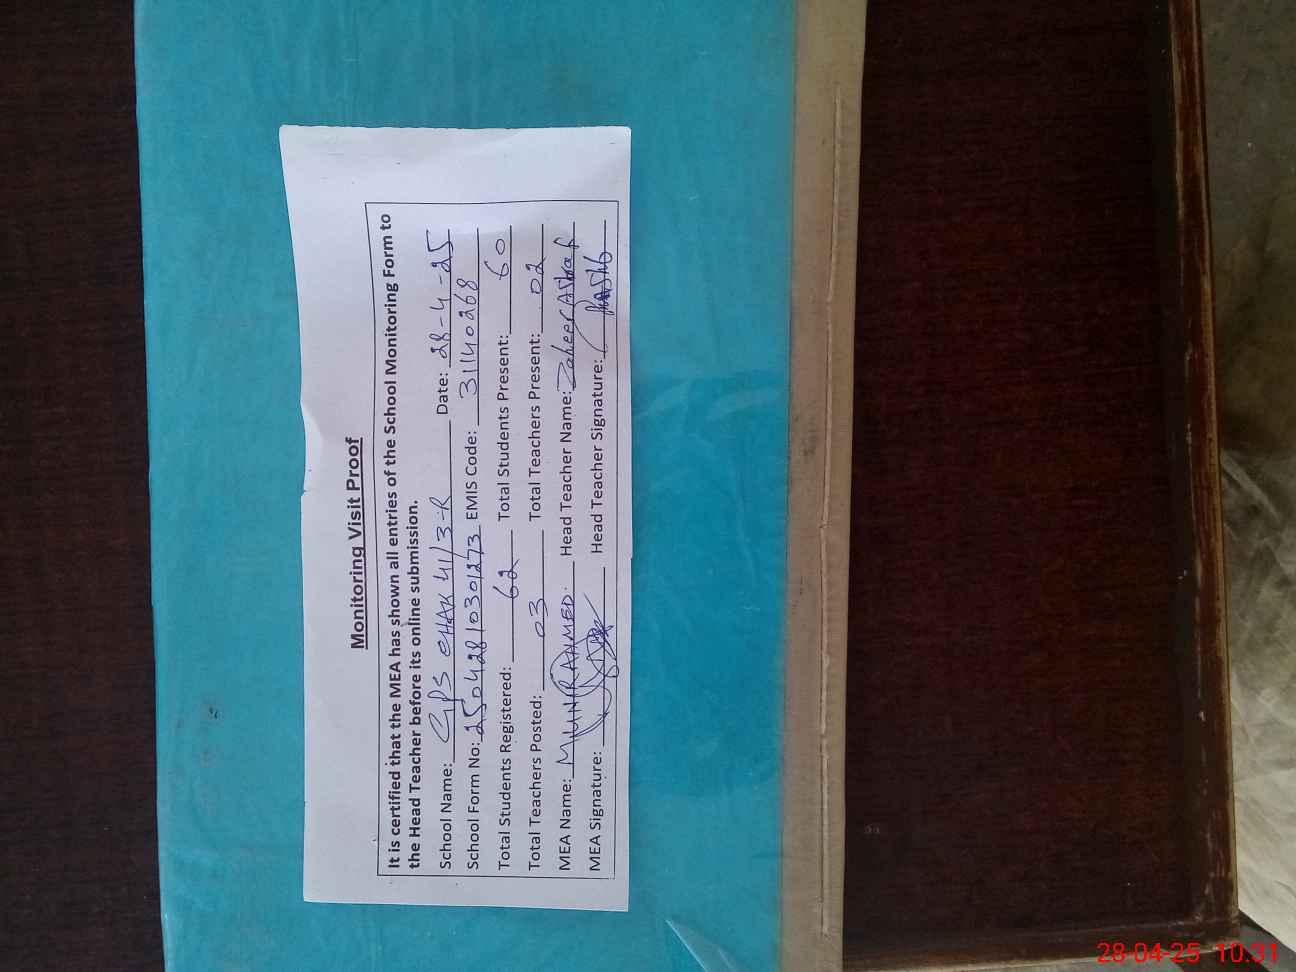 Monitoring Visit Proof
It is certified that the MEA has shown all entries of the School Monitoring Form to
the Head Teacher before its online submission.
School Name: GPS CHAK 41/3-R Date: 28-4-25
School Form No: 25042810301273 EMIS Code: 31140268
Total Students Registered: 62 Total Students Present: 60
Total Teachers Posted: 03 Total Teachers Present: 02
MEA Name: M.MUNIR AHMED. Head Teacher Name: Zaheer Ashraf
MEA Signature: Head Teacher Signature:
28-04-25 10:31